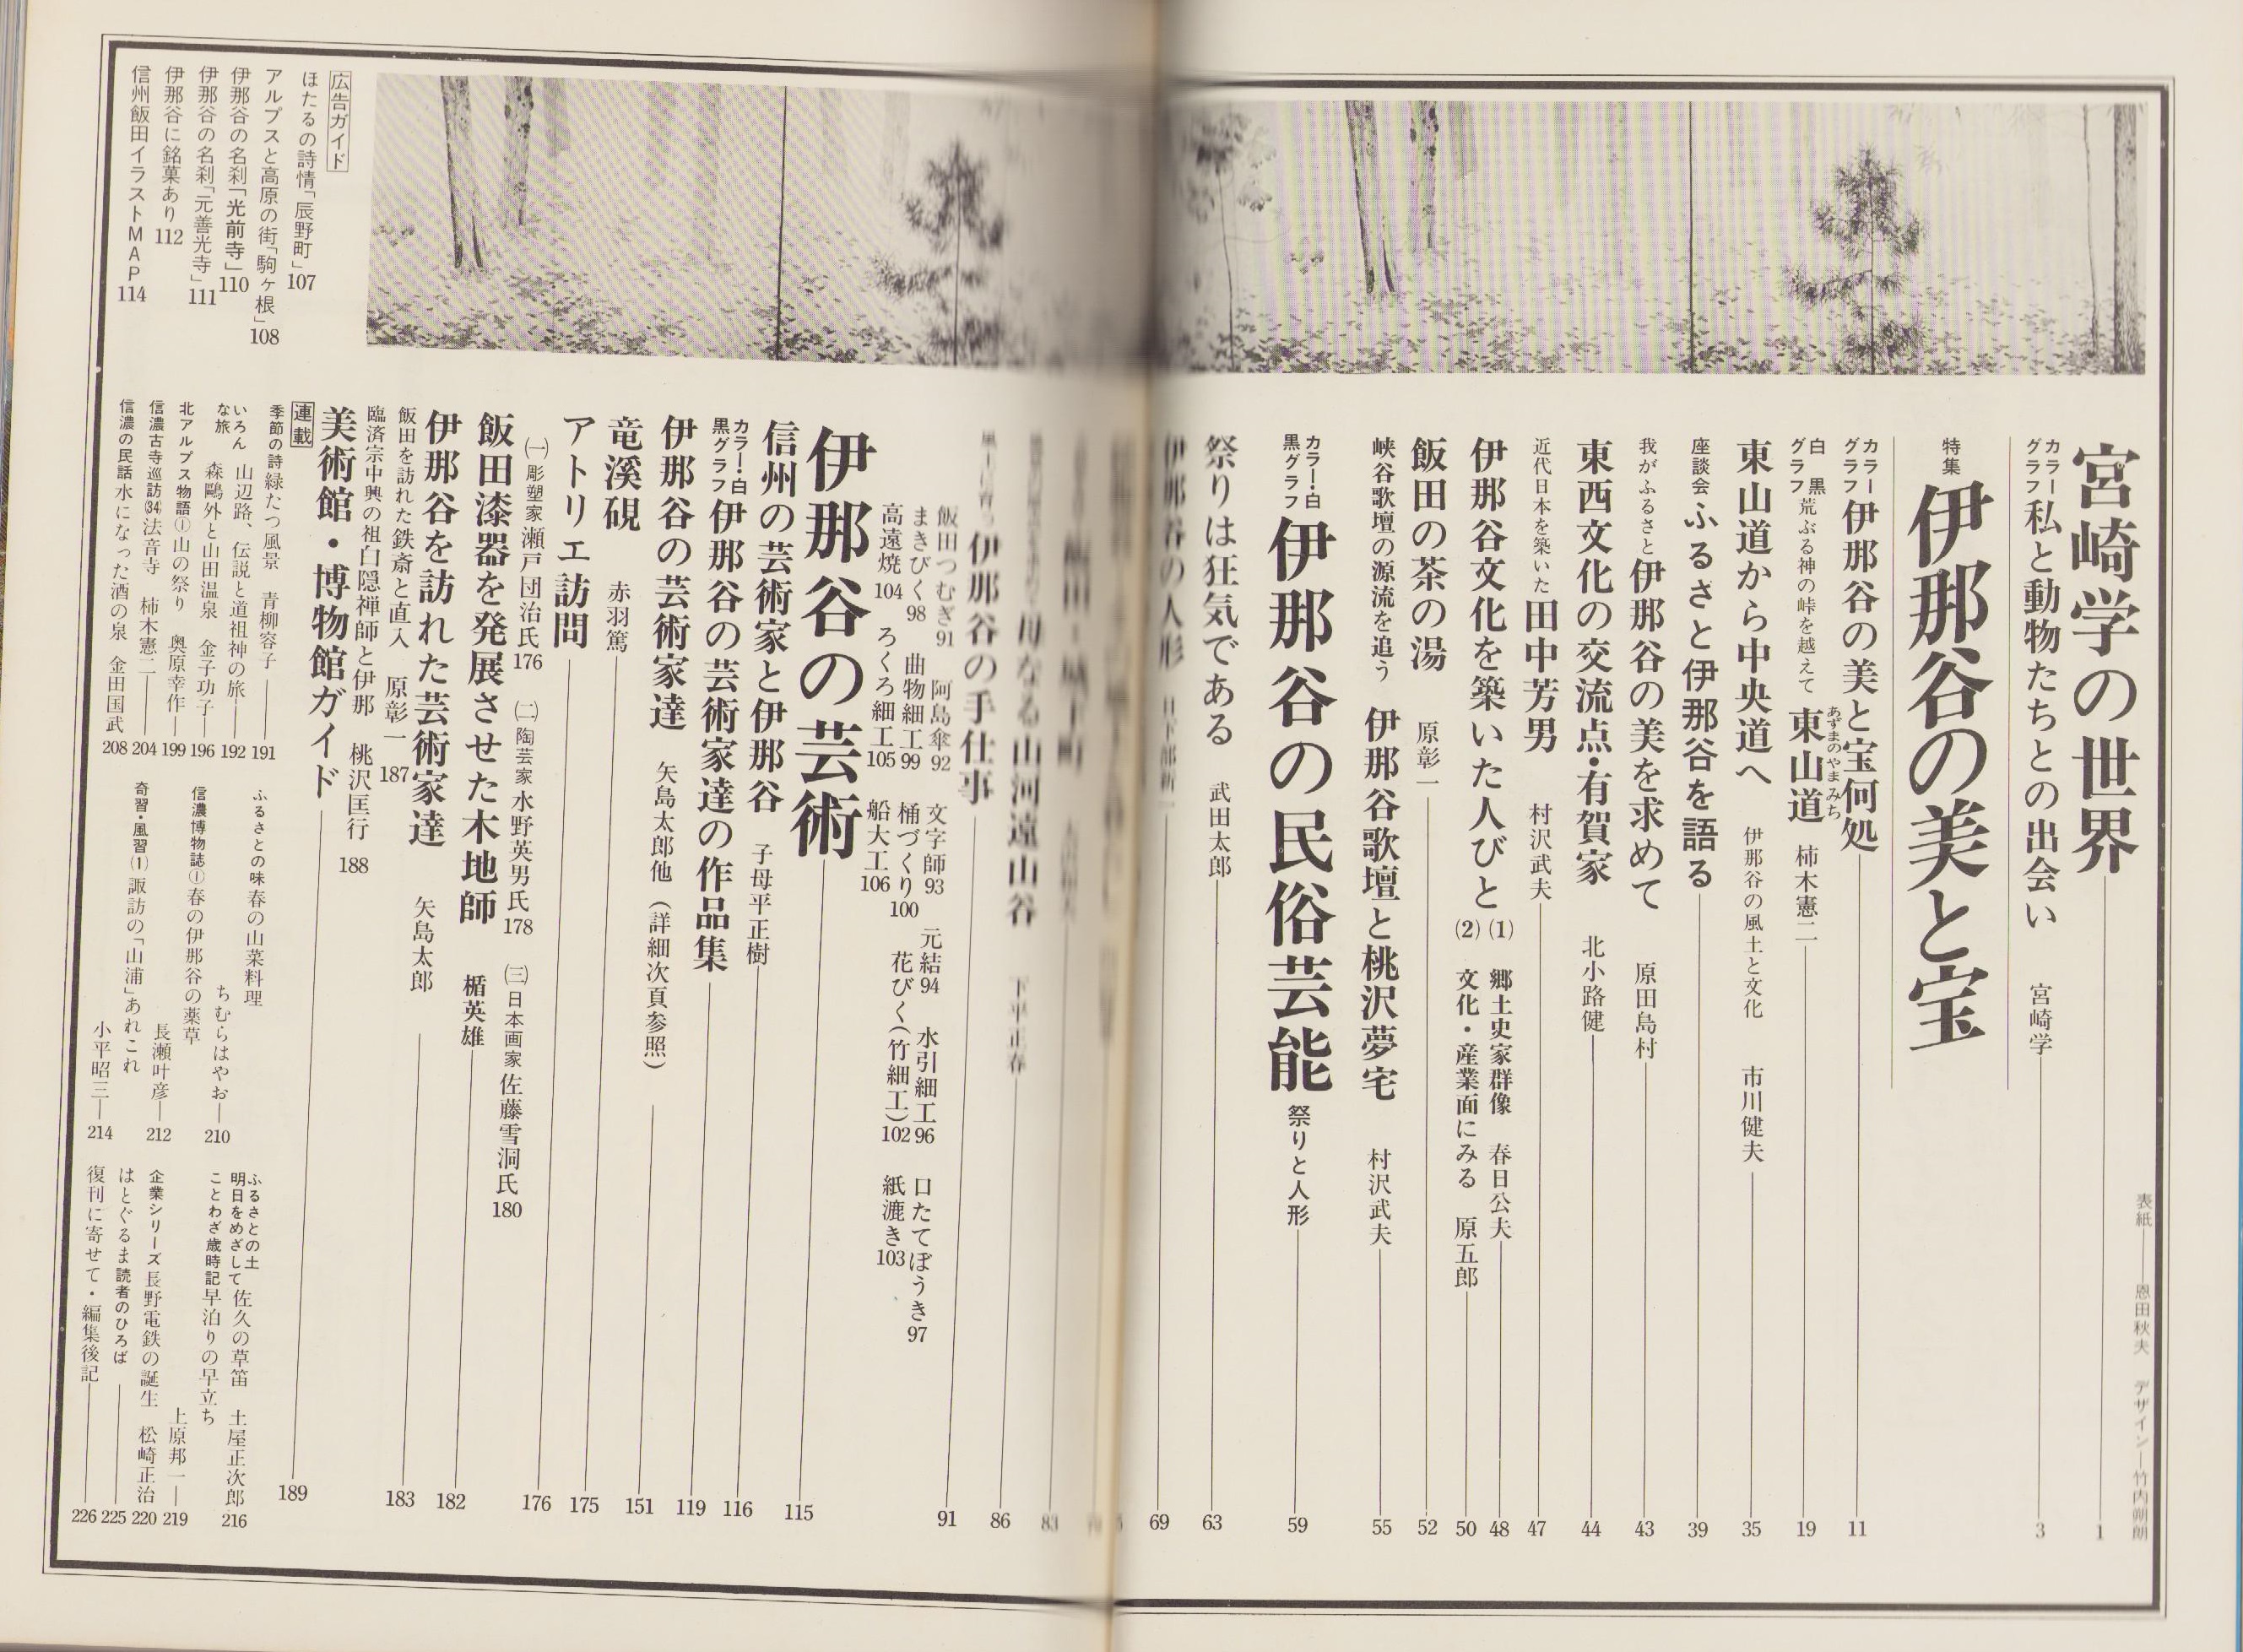 宮崎学の世界 1
カラーグラフ 私と動物たちとの出会い 宮崎学 3
特集 伊那谷の美と宝
カラーグラフ 伊那谷の美と宝何処 11
白黒グラフ 荒ぶる神の峠を越えて 東山道 あずまのやまみち 柿木憲二 19
東山道から中央道へ 伊那谷の風土と文化 市川健夫 35
座談会 ふるさと伊那谷を語る 39
我がふるさと伊那谷の美を求めて 原田島村 43
東西文化の交流点・有賀家 北小路健 44
近代日本を築いた田中芳男 村沢武夫 47
伊那谷文化を築いた人びと (1) 郷土史家群像 春日公夫 48
(2) 文化・産業面にみる 原五郎 50
飯田の茶の湯 原彰一 52
峡谷歌壇の源流を追う 伊那谷歌壇と桃沢夢宅 村沢武夫 55
カラー・白黒グラフ 伊那谷の民俗芸能 祭りと人形 59
祭りは狂気である 武田太郎 63
伊那谷の人形 69
表紙 恩田秋夫 デザイン 竹内朔朗
83
母なる山河遠山谷 下平正春 86
伊那谷の手仕事 91
飯田つむぎ91 阿島傘92 文字師93 元結94 水引細工96 口たてぼうき97
まきびく98 曲物細工99 桶づくり100 花びく(竹細工)102 紙漉き103
高遠焼104 ろくろ細工105 船大工106
伊那谷の芸術 115
信州の芸術家と伊那谷 子母平正樹 116
カラー・白黒グラフ 伊那谷の芸術家達の作品集 119
伊那谷の芸術家達 矢島太郎他 (詳細次頁参照) 151
竜溪硯 赤羽篤 175
アトリエ訪問 176
㈠彫塑家 瀬戸団治氏176 ㈡陶芸家 水野英男氏178 ㈢日本画家 佐藤雪洞氏180
飯田漆器を発展させた木地師 楯英雄 182
伊那谷を訪れた芸術家達 矢島太郎 183
飯田を訪れた鉄斎と直入 原彰一 187
臨済宗中興の祖白隠禅師と伊那 桃沢匡行 188
美術館・博物館ガイド 189
連載
季節の詩 緑たつ風景 青柳容子 191
いろんな旅 山辺路、伝説と道祖神の旅 192
森鷗外と山田温泉 金子功子 196
北アルプス物語① 山の祭り 奥原幸作 199
信濃古寺巡訪(34) 法音寺 柿木憲二 204
信濃の民話 水になった酒の泉 金田国武 208
ふるさとの味 春の山菜料理 ちむらはやお 210
信濃博物誌① 春の伊那谷の薬草 長瀬叶彦 212
奇習・風習(1) 諏訪の「山浦」あれこれ 小平昭三 214
ふるさとの土 明日をめざして 佐久の草笛 土屋正次郎 216
ことわざ歳時記 早泊りの早立ち 上原邦一 219
企業シリーズ 長野電鉄の誕生 松崎正治 220
はとぐるま 読者のひろば 225
復刊に寄せて・編集後記 226
広告ガイド
ほたるの詩情「辰野町」107
アルプスと高原の街「駒ヶ根」108
伊那谷の名刹「光前寺」110
伊那谷の名刹「元善光寺」111
伊那谷に銘菓あり112
信州飯田イラストMAP114